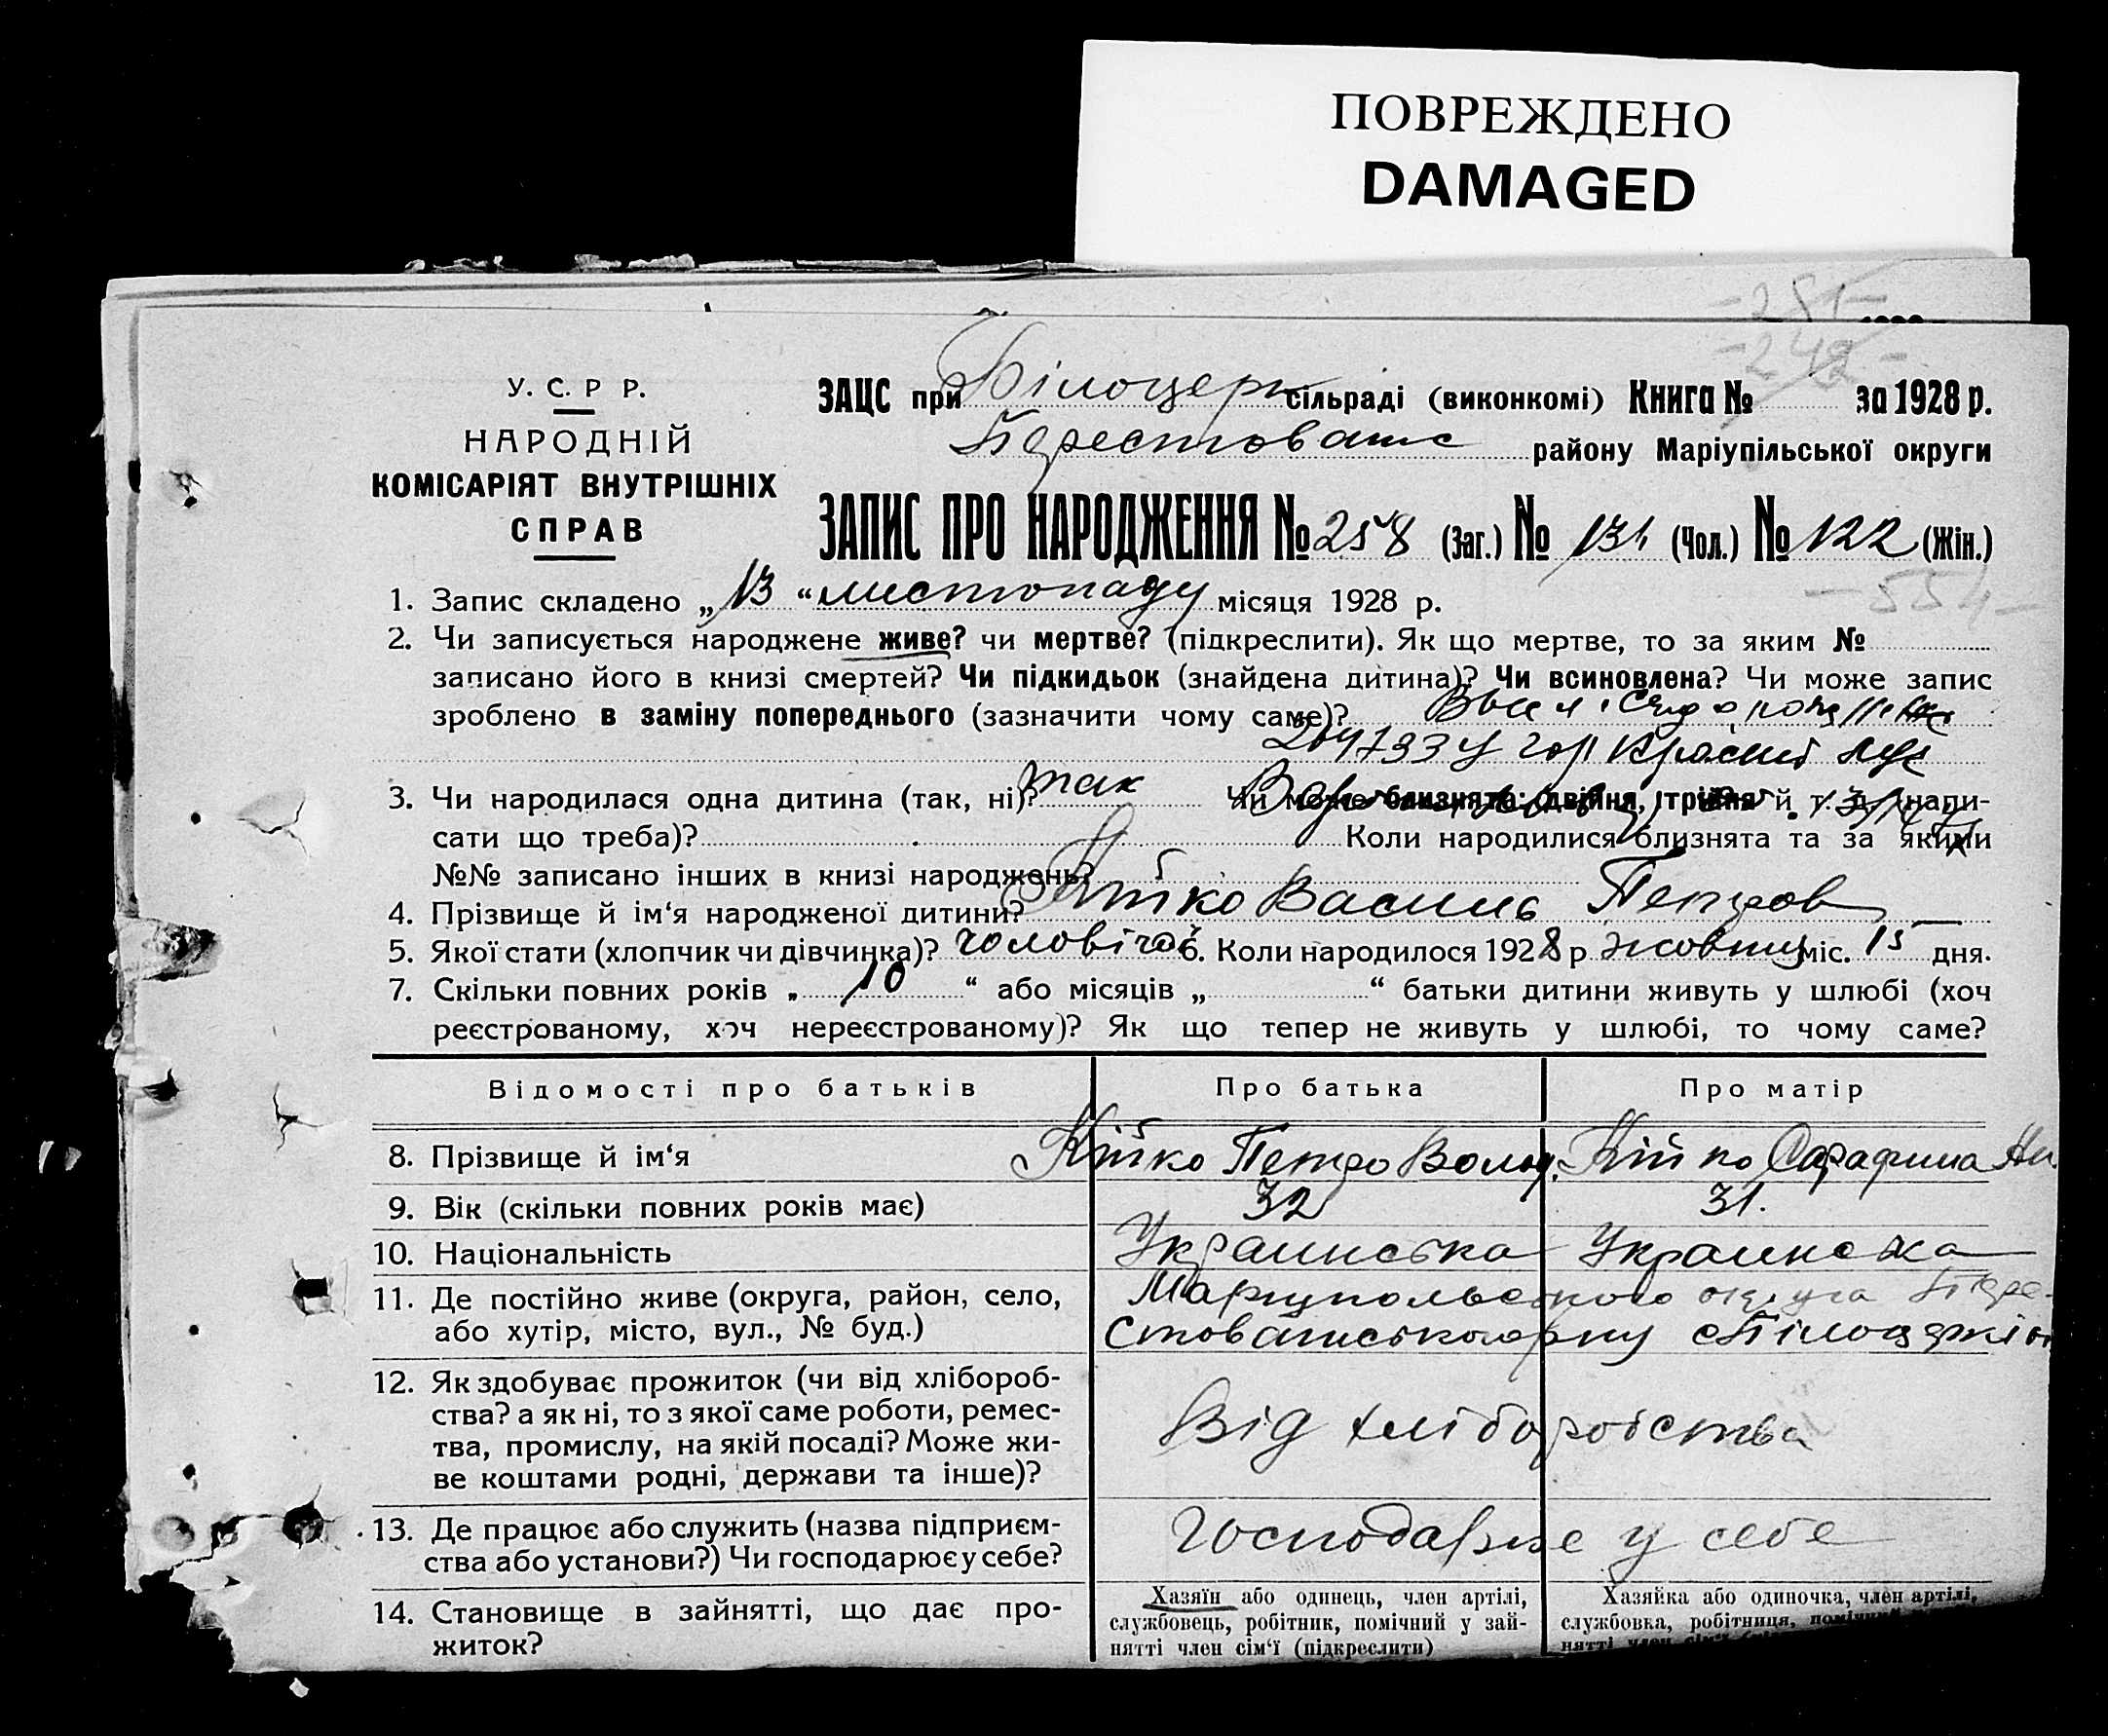 ПОВРЕЖДЕНО
DAMAGED
-281-
-242-
У. С. Р Р.
НАРОДНІЙ
КОМІСАРІЯТ ВНУТРІШНІХ
СПРАВ
ЗАЦС при Білоцерк сільраді (виконкомі) Книга № за 1928 р.
району Маріупільської округи
ЗАПИС ПРО НАРОДЖЕННЯ № 258 (Заг.) № 131 (Чол.) № 122 (Жін.)
-554-
1. Запис складено „13“ листопаду місяця 1928 р.
2. Чи записується народжене живе? чи мертве? (підкреслити). Як що мертве, то за яким №
записано його в книзі смертей? Чи підкидьок (знайдена дитина)? Чи всиновлена? Чи може запис
зроблено в заміну попереднього (зазначити чому саме)?
у гор Красний
3. Чи народилася одна дитина (так, ні)? так Чи може близнята: двійня, трійня й т. д. (напи-
сати що треба)? Коли народилися близнята та за якими
№№ записано інших в книзі народжень?
4. Прізвище й ім‘я народженої дитини? Кійко Василь Петров
5. Якої стати (хлопчик чи дівчинка)? чоловічої 6. Коли народилося 1928 р жовтня міс. 15 дня.
7. Скільки повних років „10“ або місяців „ “ батьки дитини живуть у шлюбі (хоч
реєстрованому, хоч нереєстрованому)? Як що тепер не живуть у шлюбі, то чому саме?
Відомості про батьків Про батька Про матір
8. Прізвище й ім‘я Кійко Петро Волод. Кійко Сарафима
9. Вік (скільки повних років має) 32 31.
10. Національність Украинська Украинська
11. Де постійно живе (округа, район, село,
або хутір, місто, вул., № буд.)
Мариупольського округа
12. Як здобуває прожиток (чи від хлібороб-
ства? а як ні, то з якої саме роботи, ремес-
тва, промислу, на якій посаді? Може жи-
ве коштами родні, держави та інше)?
Від хліборобства
13. Де працює або служить (назва підприєм-
ства або установи?) Чи господарює у себе?
Господарює у себе
14. Становище в зайнятті, що дає про-
житок?
Хазяїн або одинець, член артілі,
службовець, робітник, помічний у зай-
нятті член сім‘ї (підкреслити)
Хазяйка або одиночка, член артілі,
службовка, робітниця, помічний
нятті член